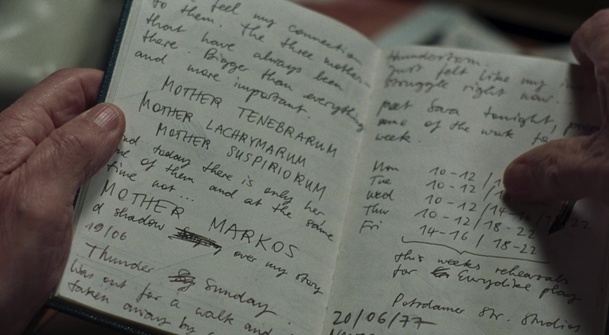 feel my connection
to them. The three mothers
that have always been
there. Bigger than everything
and more important.
MOTHER TENEBRARUM
MOTHER LACHRYMARUM
MOTHER SUSPIRIORUM
and today there is only her
one of them and at the same
time not...
MOTHER MARKOS
a shadow over my story
19/06
Thunder Sunday.
Was out for a walk and
taken away by a
thunderstorm.
Just felt like my
struggle right now.
met Sara tonight,
some of the work
week.
Mon 10-12 /
Tue 10-12 /
Wed 10-12 /
Thur 10-12 /
Fri 14-16 / 18-22
this weeks rehearsals
for Eurydike play
Potsdamer Str. Studios
20/06/77